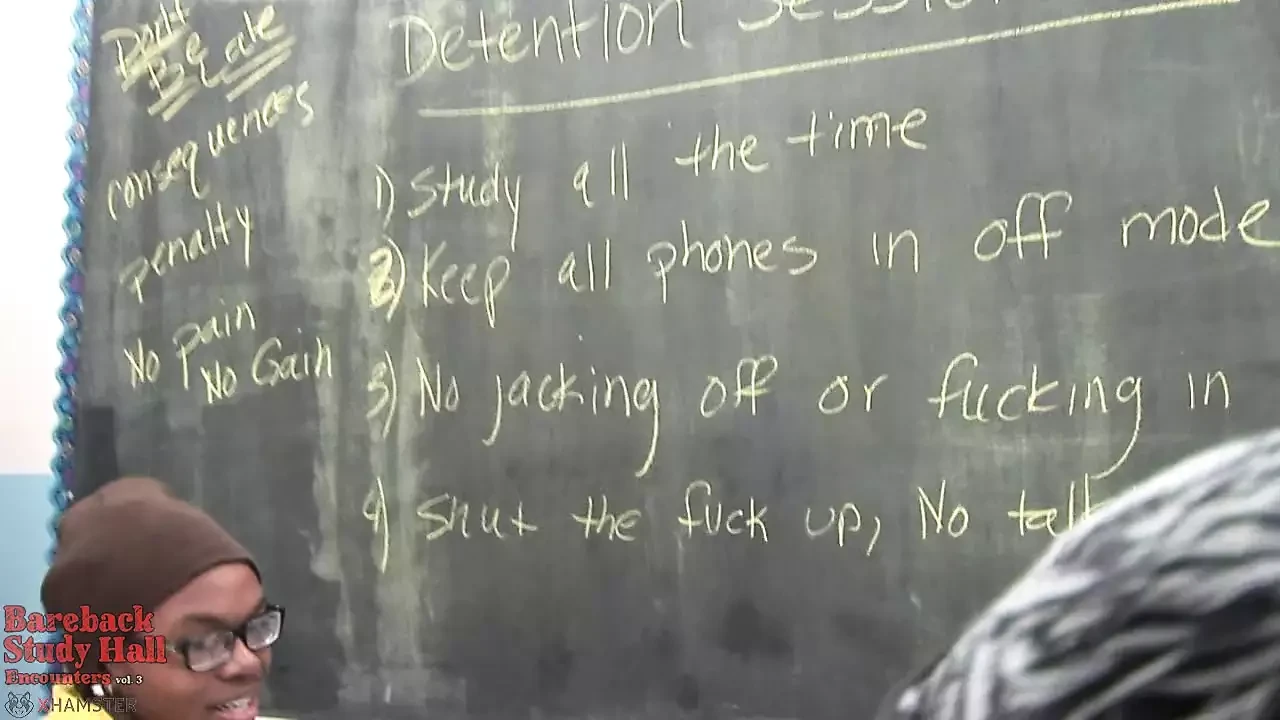 Don't
Be Late
consequences
penalty
No pain
No Gain
Detention Session
1) Study all the time
2) Keep all phones in off mode
3) No jacking off or fucking in
4) Shut the fuck up, No talk
Bareback
Study Hall
Encounters vol. 3
XHAMSTER